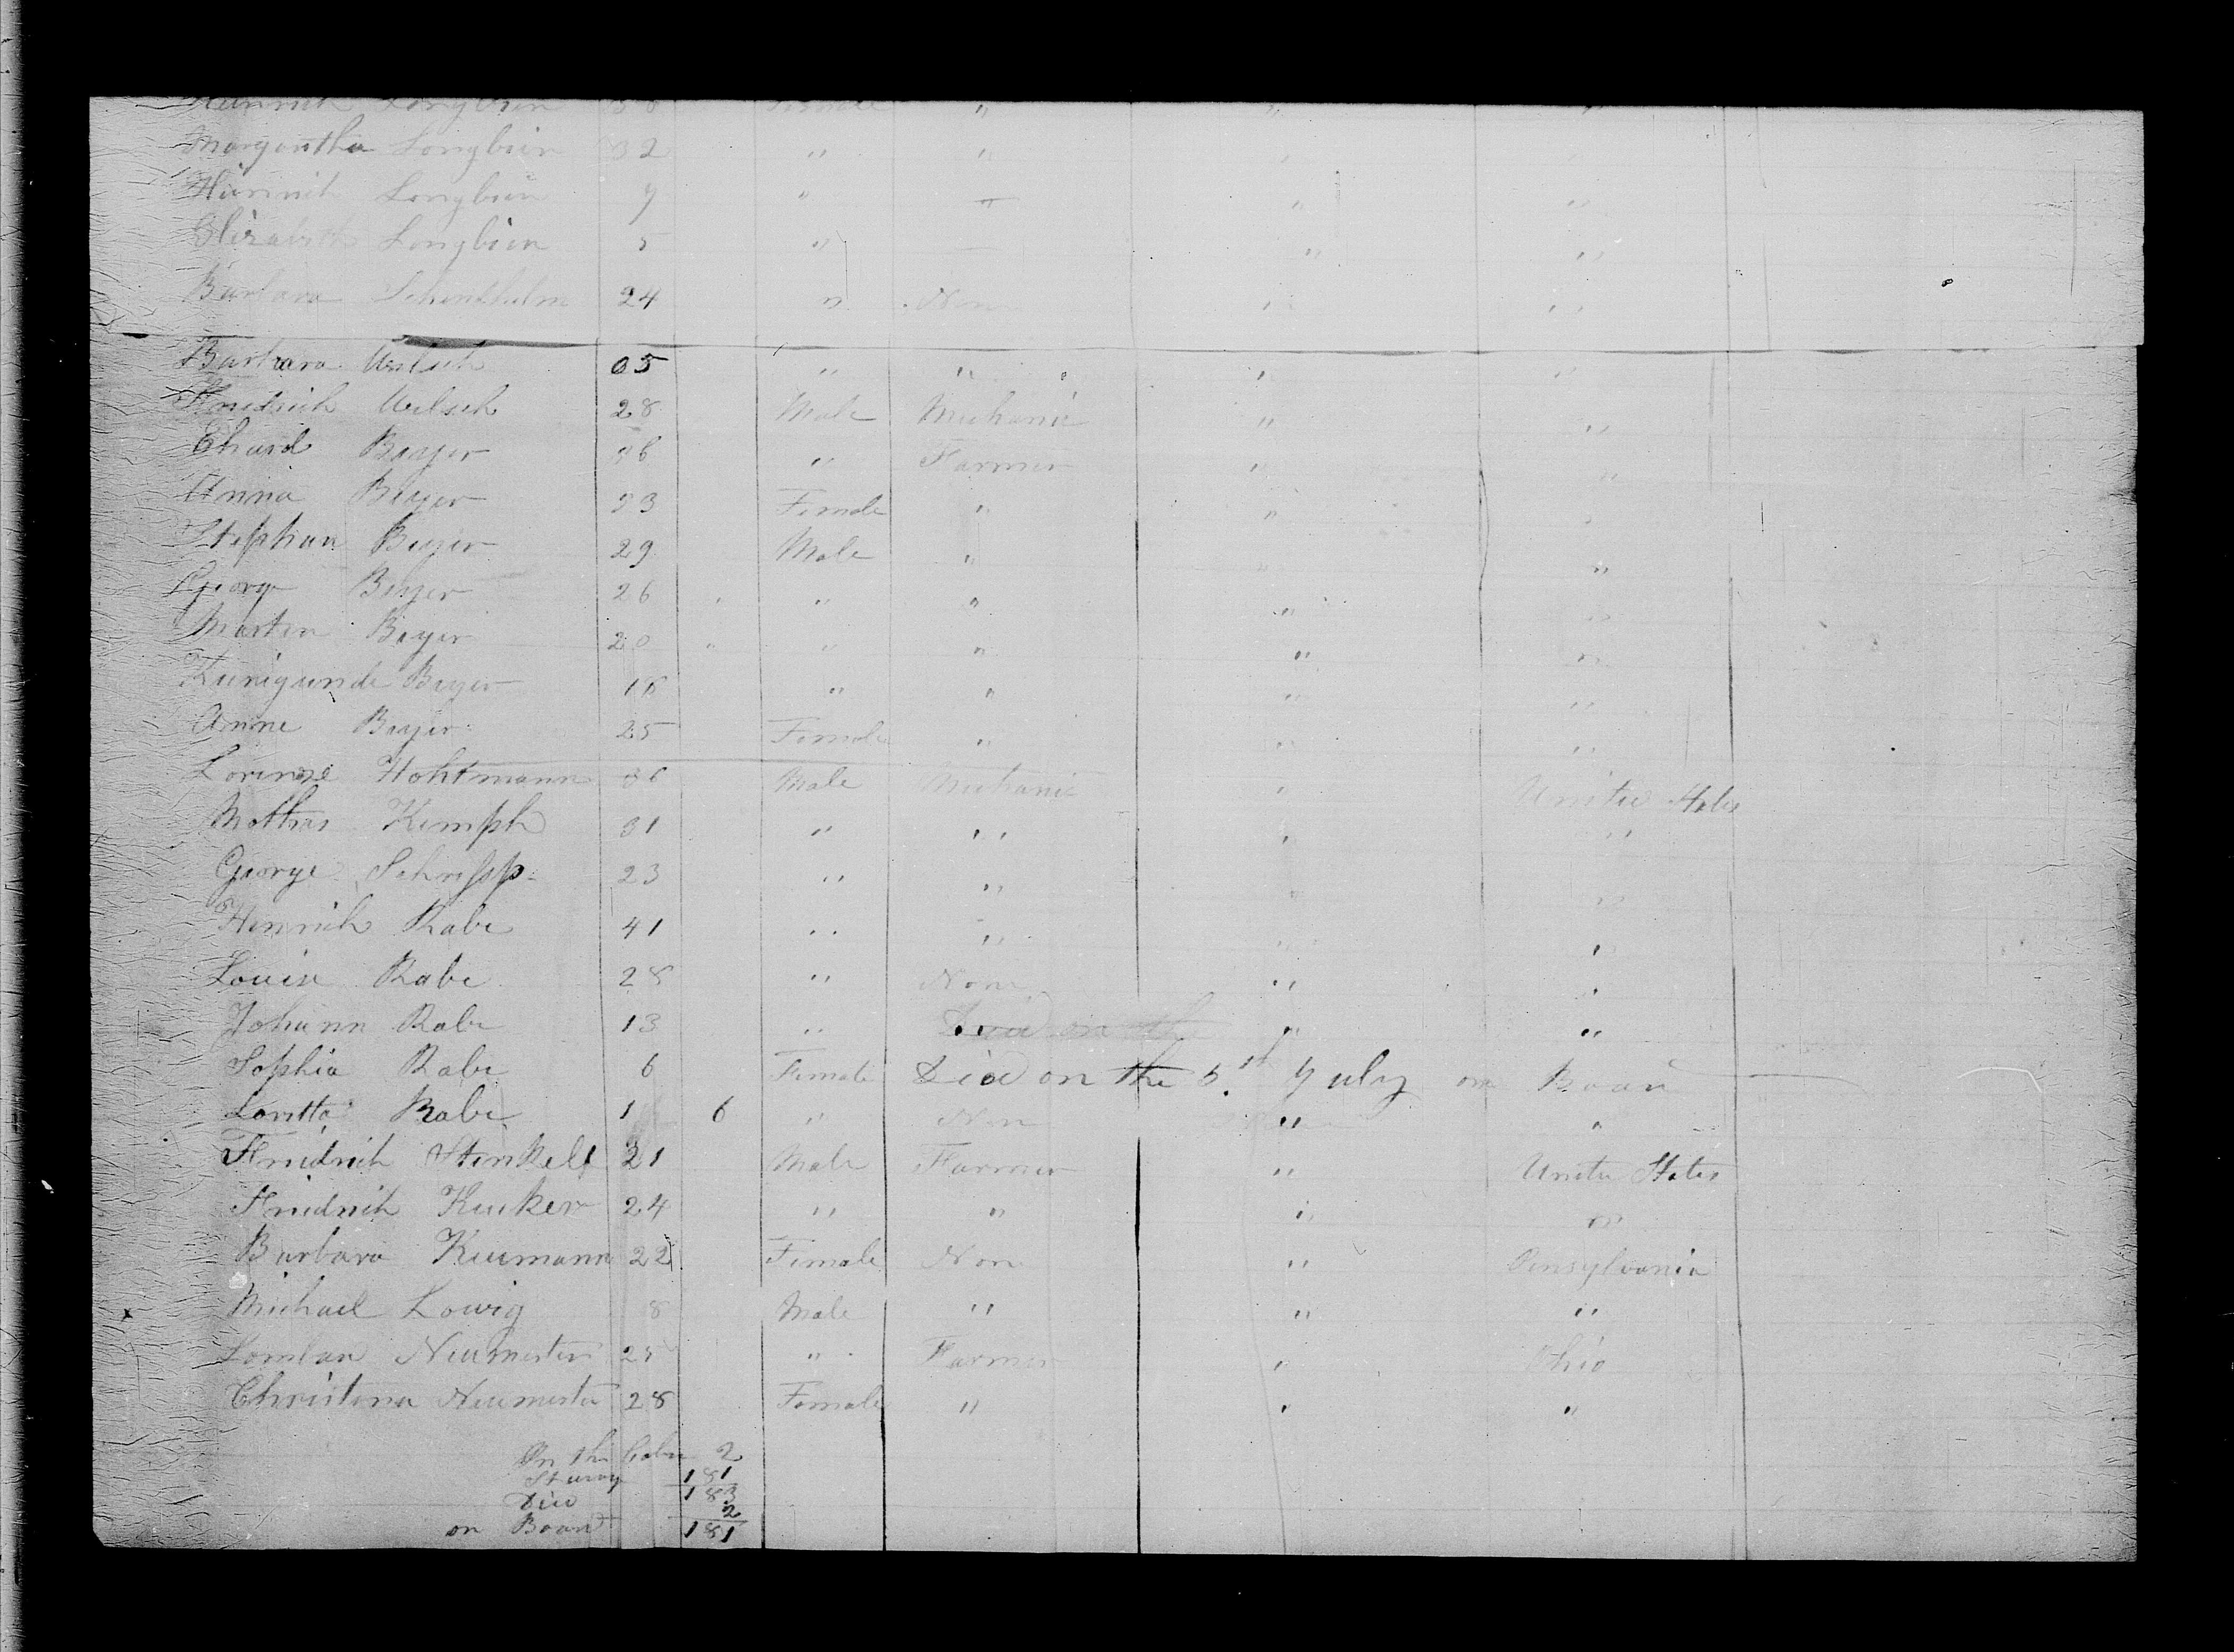 Heinrich Longbien 38 Female " " "
Margaretha Longbien 32 " " " "
Heinrich Longbien 9 " " " "
Elizabeth Longbien 5 " — " "
Barbara 24 " Non " "
Barbara Uelsch 05 " " " "
Friedrich Uelsch 28 Male Mechanic " "
Ehard Beyer 56 " Farmer " "
Anna Beyer 53 Female " " "
Stephan Beyer 29 Male " " "
Georg Beyer 26 " " " "
Martin Beyer 20 " " " " "
Kunigunde Beyer 16 " " " "
Anne Beyer 25 Female " " "
Lorenze Hohtmann 36 Male Mechanic " Unite States
Mathias Kemph 31 " " " "
George 23 " " " "
Henrich Rabe 41 " " " "
Louise Rabe 28 " Non " "
Johann Rabe 13 " Died on th " "
Sophia Rabe 6 Female Died on the 5th July on Board
Loretta Rabe 1 6 " Non " "
Friedrich 21 Male Farmer " Unite States
Friedrich Keuker 24 " " " "
Barbara Keumann 22 Female Non " Pensylvania
Michael Lowig 8 Male " " "
Neumester 25 " Farmer " Ohio
Christena Neumester 28 Female " " "
On the Cabin 2
Sturag 181
Died 183
2
on Board 181